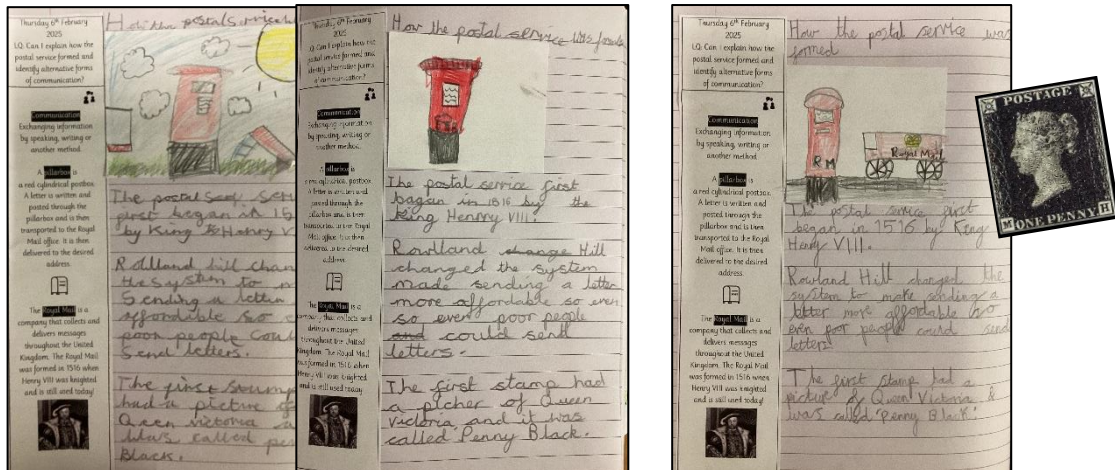 Thursday 6th February
2025
I.Q. Can I explain how the
postal service formed and
identify alternative forms
of communication?
Communication
Exchanging information
by speaking, writing or
another method.
A pillarbox is
a red cylindrical postbox.
A letter is written and
posted through the
pillarbox and is then
transported to the Royal
Mail office. It is then
delivered to the desired
address.
The Royal Mail is a
company that collects and
delivers messages
throughout the United
Kingdom. The Royal Mail
was formed in 1516 when
Henry VIII was knighted
and is still used today!
How the postal service
The postal
first began in 15
by King Henry V
Rolland hill chan
the system to
Sending a letter
affordable soo
poor people coul
Send letters.
The first
had a picture o
Queen victoria
Was called pe
Black.
Thursday 6th February
2025
I.Q. Can I explain how the
postal service formed and
identify alternative forms
of communication?
Communication
Exchanging information
by speaking, writing or
another method.
A pillarbox is
a red cylindrical postbox.
A letter is written and
posted through the
pillarbox and is then
transported to the Royal
Mail office. It is then
delivered to the desired
address.
The Royal Mail is a
company that collects and
delivers messages
throughout the United
Kingdom. The Royal Mail
was formed in 1516 when
Henry VIII was knighted
and is still used today
How the postal service was
The postal service first
began in 1516 by the
King Henrry VIII.
Rowland change Hill
changed the system
made sending a letter
more affordable so even
so every poor people
and could send
letters.
The first stamp had
a picher of Queen
Victoria and it was
called Penny Black.
Thursday 6th February
2025
I.Q. Can I explain how the
postal service formed and
identify alternative forms
of communication?
Communication
Exchanging information
by speaking, writing or
another method.
A pillarbox is
a red cylindrical postbox.
A letter is written and
posted through the
pillarbox and is then
transported to the Royal
Mail office. It is then
delivered to the desired
address.
The Royal Mail is a
company that collects and
delivers messages
throughout the United
Kingdom. The Royal Mail
was formed in 1516 when
Henry VIII was knighted
and is still used today!
How the postal service was
formed
RM
Royal Mail
The postal service first
began in 1516 by King
Henry VIII.
Rowland Hill changed the
system to make sending a
letter more affordable so
even poor people could send
letters.
The first stamp had a
picture of Queen Victoria &
was called 'Penny Black'
POSTAGE
M ONE PENNY H